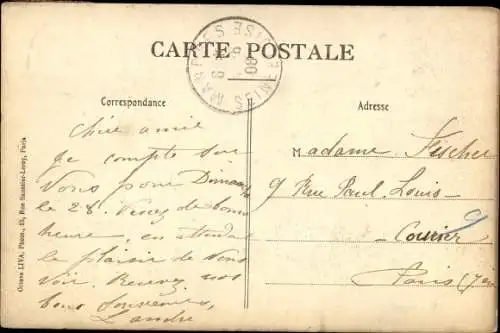 CARTE POSTALE
Correspondance
Adresse
Chère amie
Je compte sur
Vous pour Dimanche
le 28. Venez de bonne
heure, en attendant
le plaisir de vous
voir. Recevez nos
bons souvenirs,
Landre
Madame Fischer
9 Rue Paul-Louis-
Courier
Paris (7e